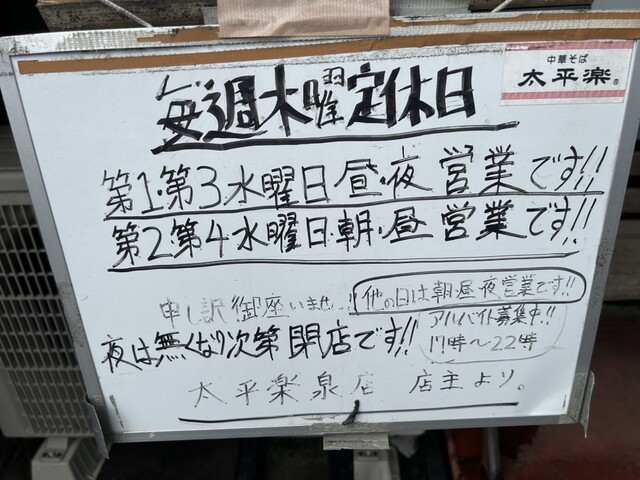 中華そば
太平楽
毎週木曜定休日
第1・第3水曜日昼・夜営業です!!
第2第4水曜日・朝・昼営業です!!
申し訳御座いませ!!
他の日は朝昼夜営業です!!
夜は無くなり次第閉店です!!
アルバイト募集中!!
17時〜22時
太平楽泉店 店主より。